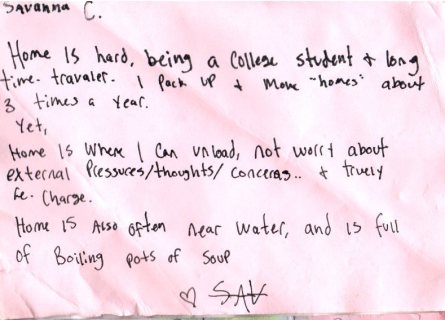 Savanna C.
Home Is hard, being a College student & long
time-travaler. I Pack up & Move "homes" about
3 times a Year.
Yet,
Home Is Where I Can unload, not worry about
external Pressures/thoughts/conceras.. & truely
Re-Charge.
Home IS Also often near water, and is full
of Boiling pots of Soup
♡ SAV